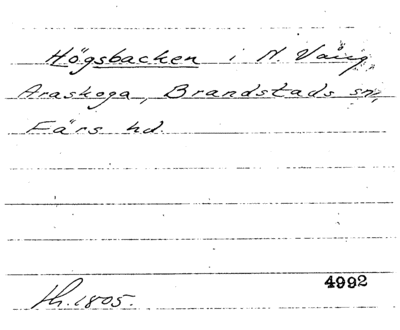 Högsbacken i N. Vång
Araskoga, Brandstads sn,
Färs hd.
4992
lh. 1805.